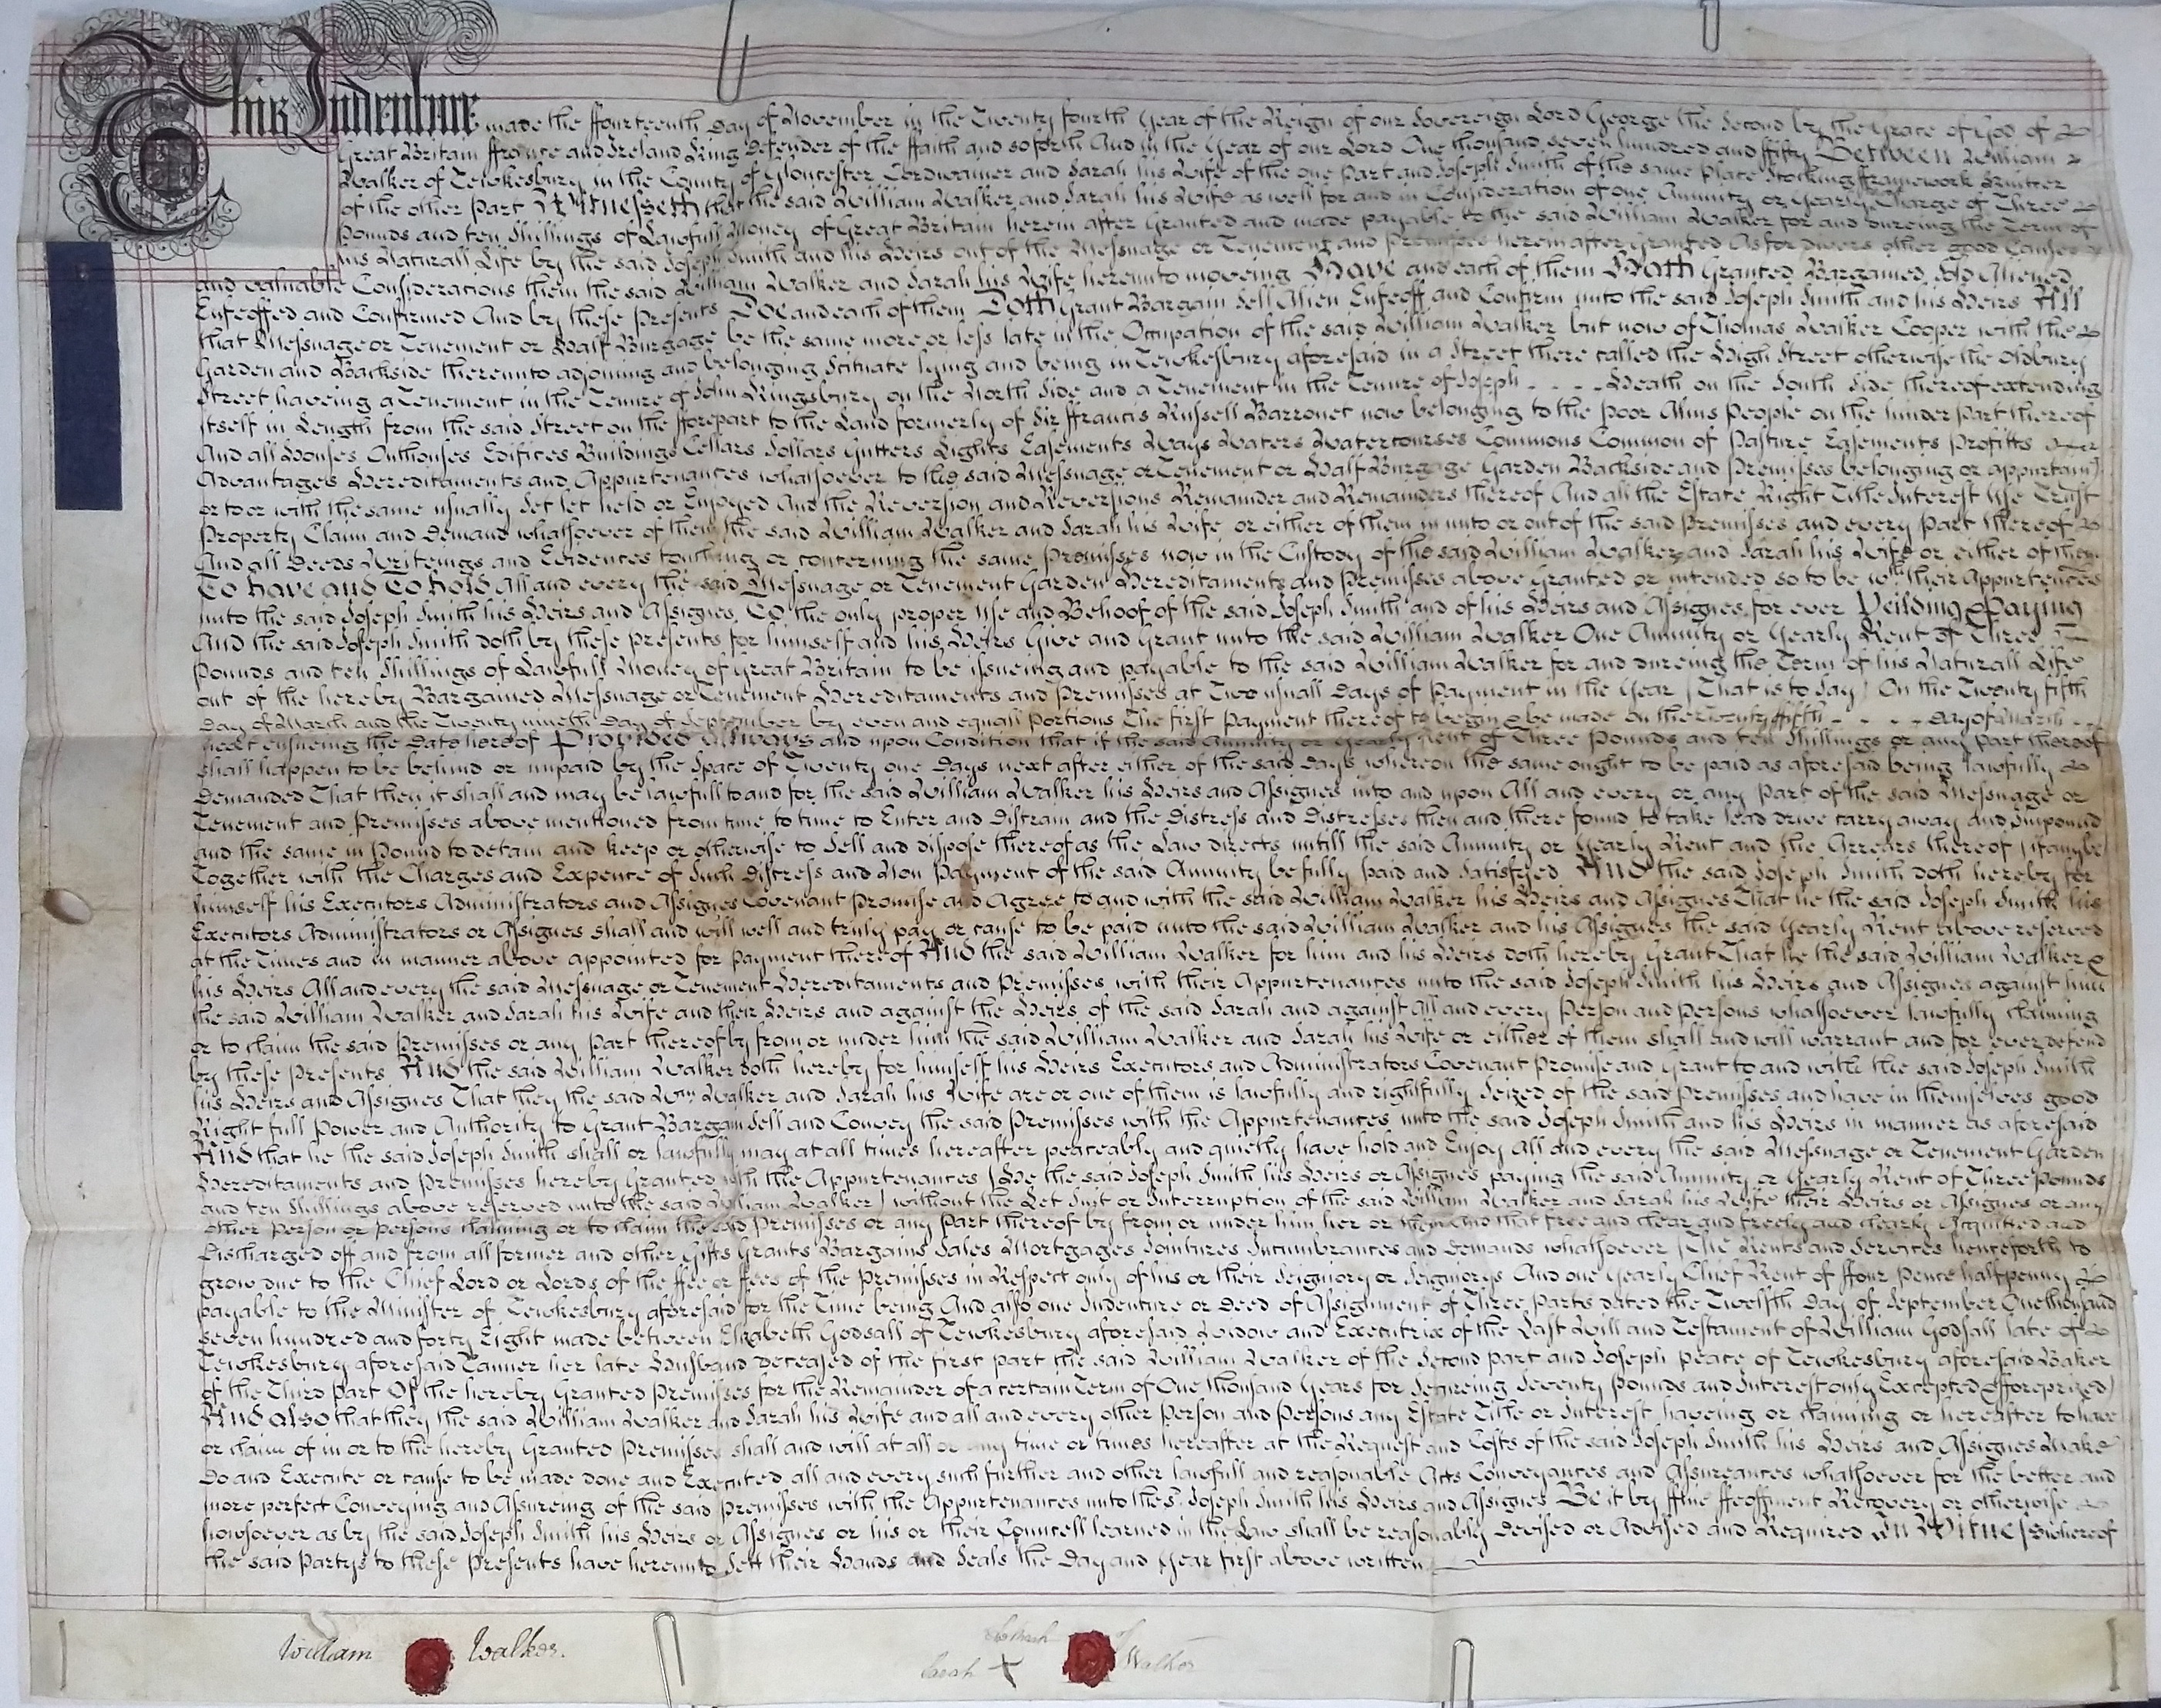 This Indenture made the ffourteenth Day of November in the Twenty fourth Year of the Reign of our Sovereign Lord George the Second by the Grace of God of
Great Britain ffrance and Ireland King Defender of the ffaith and soforth And in the Year of our Lord One thousand seven hundred and ffifty Between William
Walker of Tewkesbury in the County of Gloucester Cordwainer and Sarah his Wife of the one Part and Joseph Smith of the same place Stocking fframework Knitter
of the other Part Witnesseth that the said William Walker and Sarah his Wife as well for and in Consideration of one Annuity or Yearly Charge of Three
Pounds and ten Shillings of Lawfull Money of Great Britain herein after Granted and made payable to the said William Walker for and dureing the Term of
his Naturall Life by the said Joseph Smith and his Heirs out of the Messuage or Tenement and Premisses herein after Granted As for divers other good Causes
and valuable Considerations them the said William Walker and Sarah his Wife hereunto moveing Have and each of them Hath Granted Bargained Sold Aliened
Enfeoffed and Confirmed And by these Presents Doe and each of them Doth Grant Bargain Sell Alien Enfeoff and Confirm unto the said Joseph Smith and his Heirs All
that Messuage or Tenement or Half Burgage be the same more or less late in the Occupation of the said William Walker but now of Thomas Walker Cooper with the
Garden and Backside thereunto adjoining and belonging Scituate lying and being in Tewkesbury aforesaid in a Street there called the High Street otherwise the Oldbury
Street haveing a Tenement in the Tenure of John Kingsbury on the North Side and a Tenement in the Tenure of Joseph - - - - Heath on the South Side thereof extending
itself in Length from the said Street on the fforepart to the Land formerly of Sir ffrancis Russell Barronet now belonging to the Poor Alms People on the hinder part thereof
And all Houses Outhouses Edifices Buildings Cellars Sollars Gutters Lights Easements Ways Waters Watercourses Commons Common of Pasture Easements Profitts
Advantages Hereditaments and Appurtenances whatsoever to the said Messuage or Tenement or Half Burgage Garden Backside and Premisses belonging or appertain)
or to or with the same usually Set let held or Enjoyed And the Reversion and Reversions Remainder and Remainders thereof And all the Estate Right Title Interest Use Trust
Property Claim and Demand whatsoever of them the said William Walker and Sarah his Wife or either of them in unto or out of the said Premisses and every Part thereof
And all Deeds Writeings and Evidences touching or concerning the same Premisses now in the Custody of the said William Walker and Sarah his Wife or either of them
To have and To hold All and every the said Messuage or Tenement Garden Hereditaments and Premisses above Granted or intended so to be wth their Appurtences
unto the said Joseph Smith his Heirs and Assignes To the only proper Use and Behoof of the said Joseph Smith and of his Heirs and Assignes for ever Yeilding & Paying
And the said Joseph Smith doth by these Presents for himself and his Heirs Give and Grant unto the said William Walker One Annuity or Yearly Rent of Three
Pounds and ten Shillings of Lawfull Money of Great Britain to be issueing and payable to the said William Walker for and dureing the Term of his Naturall Life
out of the hereby Bargained Messuage or Tenement Hereditaments and Premisses at Two usuall Days of Payment in the Year (That is to Say) On the Twenty fifth
Day of March and the Twenty nineth Day of September by even and equall Portions The first Payment thereof to begin & be made on the Twenty ffifth - - - - Day of March - -
next ensueing the Date hereof Provided Always and upon Condition that if the said Annuity or Yearly Rent of Three Pounds and ten Shillings or any Part thereof
shall happen to be behind or unpaid by the Space of Twenty one Days next after either of the said Days whereon the same ought to be paid as aforesaid being lawfully
Demanded That then it shall and may be lawfull to and for the said William Walker his Heirs and Assignes into and upon All and every or any Part of the said Messuage or
Tenement and Premisses above mentioned from time to time to Enter and Distrain and the Distress and Distresses then and there found to take lead drive carry away and Impound
and the same in Pound to detain and keep or otherwise to Sell and dispose thereof as the Law directs untill the said Annuity or Yearly Rent and the Arrears thereof (if any be
Together with the Charges and Expence of Such Distress and Non Payment of the said Annuity be fully Paid and Satisfyed And the said Joseph Smith doth hereby for
himself his Executors Administrators and Assignes Covenant Promise and Agree to and with the said William Walker his Heirs and Assignes That he the said Joseph Smith his
Executors Administrators or Assignes shall and will well and truly pay or cause to be paid unto the said William Walker and his Assignes the said Yearly Rent above reserved
at the Times and in manner above appointed for Payment thereof And the said William Walker for him and his Heirs doth hereby Grant That he the said William Walker &
his Heirs All and every the said Messuage or Tenement Hereditaments and Premisses with their Appurtenances unto the said Joseph Smith his Heirs and Assignes against him
the said William Walker and Sarah his Wife and their Heirs and against the Heirs of the said Sarah and against All and every Person and Persons whatsoever lawfully claiming
or to claim the said Premisses or any Part thereof by from or under him the said William Walker and Sarah his Wife or either of them shall and will warrant and for ever defend
by these Presents And the said William Walker doth hereby for himself his Heirs Executors and Administrators Covenant Promise and Grant to and with the said Joseph Smith
his Heirs and Assignes That they the said Wm Walker and Sarah his Wife are or one of them is lawfully and rightfully Seized of the said Premisses and have in themselves good
Right full Power and Authority to Grant Bargain Sell and Convey the said Premisses with the Appurtenances unto the said Joseph Smith and his Heirs in manner as aforesaid
And that he the said Joseph Smith shall or lawfully may at all times hereafter peaceably and quietly have hold and Enjoy All and every the said Messuage or Tenement Garden
Hereditaments and Premisses hereby Granted with the Appurtenances (He the said Joseph Smith his Heirs or Assignes paying the said Annuity or Yearly Rent of Three Pounds
and ten Shillings above reserved unto the said William Walker) without the Let Suit or Interruption of the said William Walker and Sarah his Wife their Heirs or Assignes or any
other Person or Persons claiming or to claim the said Premisses or any Part thereof by from or under him her or them And that free and clear and freely and clearly Acquitted and
Discharged off and from all former and other Gifts Grants Bargains Sales Mortgages Jointures Incumbrances and Demands whatsoever (The Rents and Services henceforth to
grow due to the Chief Lord or Lords of the ffee or ffees of the Premisses in Respect only of his or their Seigniory or Seigniorys And one Yearly Chief Rent of ffour Pence halfpenny
payable to the Minister of Tewkesbury aforesaid for the Time being And also one Indenture or Deed of Assignment of Three Parts dated the Twelfth Day of September One thousand
seven hundred and forty Eight made between Elizabeth Godsall of Tewkesbury aforesaid Widow and Executrix of the Last Will and Testament of William Godsall late of
Tewkesbury aforesaid Tanner her late Husband deceased of the first part the said William Walker of the Second part and Joseph Peace of Tewkesbury aforesaid Baker
of the Third Part Of the hereby Granted Premisses for the Remainder of a certain Term of One thousand Years for Secureing Seventy Pounds and Interest only Excepted & fforeprized)
And also that they the said William Walker and Sarah his Wife and all and every other Person and Persons any Estate Title or Interest haveing or claiming or hereafter to have
or claim of in or to the hereby Granted Premisses shall and will at all or any time or times hereafter at the Request and Costs of the said Joseph Smith his Heirs and Assignes Make
Do and Execute or cause to be made done and Executed all and every such further and other lawfull and reasonable Acts Conveyances and Assureances whatsoever for the better and
more perfect Conveying and Assureing of the said Premisses with the Appurtenances unto the sd Joseph Smith his Heirs and Assignes Be it by ffine ffeoffment Recovery or otherwise
howsoever as by the said Joseph Smith his Heirs or Assignes or his or their Councell learned in the Law shall be reasonably Devised or Advised and Required In Witness whereof
the said Partys to these Presents have hereunto Sett their Hands and Seals the Day and Year first above written
William Walker.
Sarah X Walker